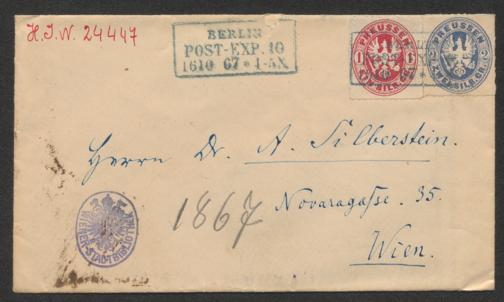 H.I.N. 24447
BERLIN
POST-EXP. 10
16 10 67 * 4-5N.
PREUSSEN
1 1
EIN SILB.GR.
PREUSSEN
2
ZWEI SILB.GR.
Herrn Dr. A. Silberstein.
Novaragasse. 35.
Wien.
1867
WIENER STADTBIBLIOTHEK